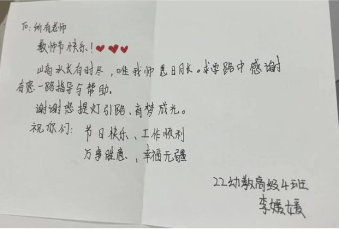 To: 所有老师
教师节快乐!
山高水长有时尽,唯我师恩日月长。求学路中感谢
有您一路指导与帮助。
谢谢您提灯引路,育梦成光。
祝你们: 节日快乐、工作顺利
万事胜意、幸福无疆
22幼教高级4班
李媛媛